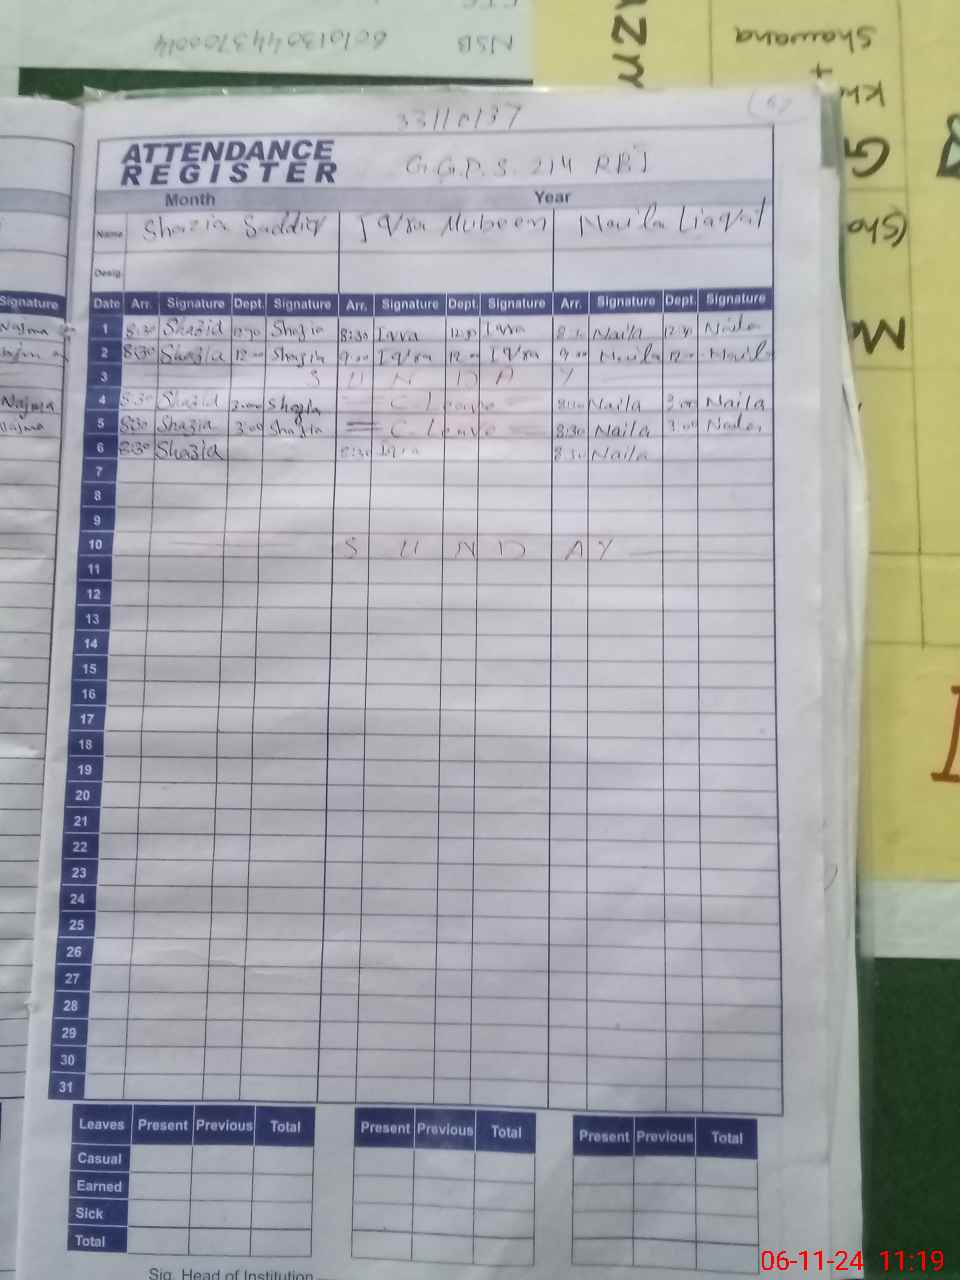 NSB 6010130443700014
Shawana
+
G
33110137
ATTENDANCE
REGISTER
G.G.P.S. 214 RBI
Month Year
Name Shazia Saddiq Iqra Mubeen Naila Liaqat
Desig.
Signature Date Arr. Signature Dept. Signature Arr. Signature Dept. Signature Arr. Signature Dept. Signature
Najma 1 8:30 Shazia 12:30 Shazia 8:30 Iqra 12:30 Iqra 8:30 Naila 12:30 Naila
2 8:30 Shazia 12:00 Shazia 9:00 Iqra 12:00 Iqra 9:00 Naila 12:00 Naila
3 S U N D A Y
Najma 4 8:30 Shazia 3:00 Shazia C. Leave Naila 3:00 Naila
Najma 5 8:30 Shazia 3:00 Shazia C. Leave 8:30 Naila 3:00 Naila
6 8:30 Shazia 8:30 Iqra 8:30 Naila
7
8
9
10 S U N D A Y
11
12
13
14
15
16
17
18
19
20
21
22
23
24
25
26
27
28
29
30
31
Leaves Present Previous Total Present Previous Total Present Previous Total
Casual
Earned
Sick
Total
Sig. Head of Institution
06-11-24 11:19